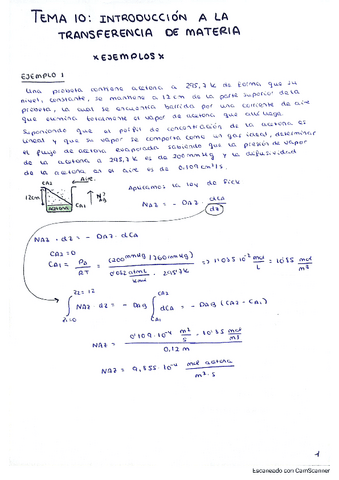 TEMA 10: INTRODUCCIÓN A LA
TRANSFERENCIA DE MATERIA
* EJEMPLOS *
EJEMPLO 1
Una probeta contiene acetona a 295,7 K de forma que su
nivel, constante, se mantiene a 12 cm de la parte superior de la
probeta, la cual se encuentra barrida por una corriente de aire
que elimina totalmente el vapor de acetona que allí llega.
Suponiendo que el perfil de concentración de la acetona es
lineal y que su vapor se comporta como un gas ideal, determinar
el flujo de acetona evaporada sabiendo que la presión de vapor
de la acetona a 295,7 K es de 200 mmHg y la difusividad
de la acetona en el aire es de 0,109 cm²/s.
CA2 Aire
12cm CA1 ↑ NAB
ACETONA
Aplicamos la ley de Fick
NAZ = - DAB · dCA/dz
NAZ · dz = - DAB · dCA
CA2 = 0
CA1 = PA/RT = (200 mmHg / 760 mmHg) / (0'082 · 295'7K) => 1'085 · 10⁻² mol/L = 10'85 mol/m³
∫ z1=0 z2=12 NAZ · dz = - DAB ∫ CA1 CA2 dCA = - DAB · (CA2 - CA1)
NAZ = 0'109 · 10⁻⁴ m²/s · 10'85 mol/m³ / 0,12 m
NAZ = 9,855 · 10⁻⁴ mol acetona / m² · s
1
Escaneado con CamScanner